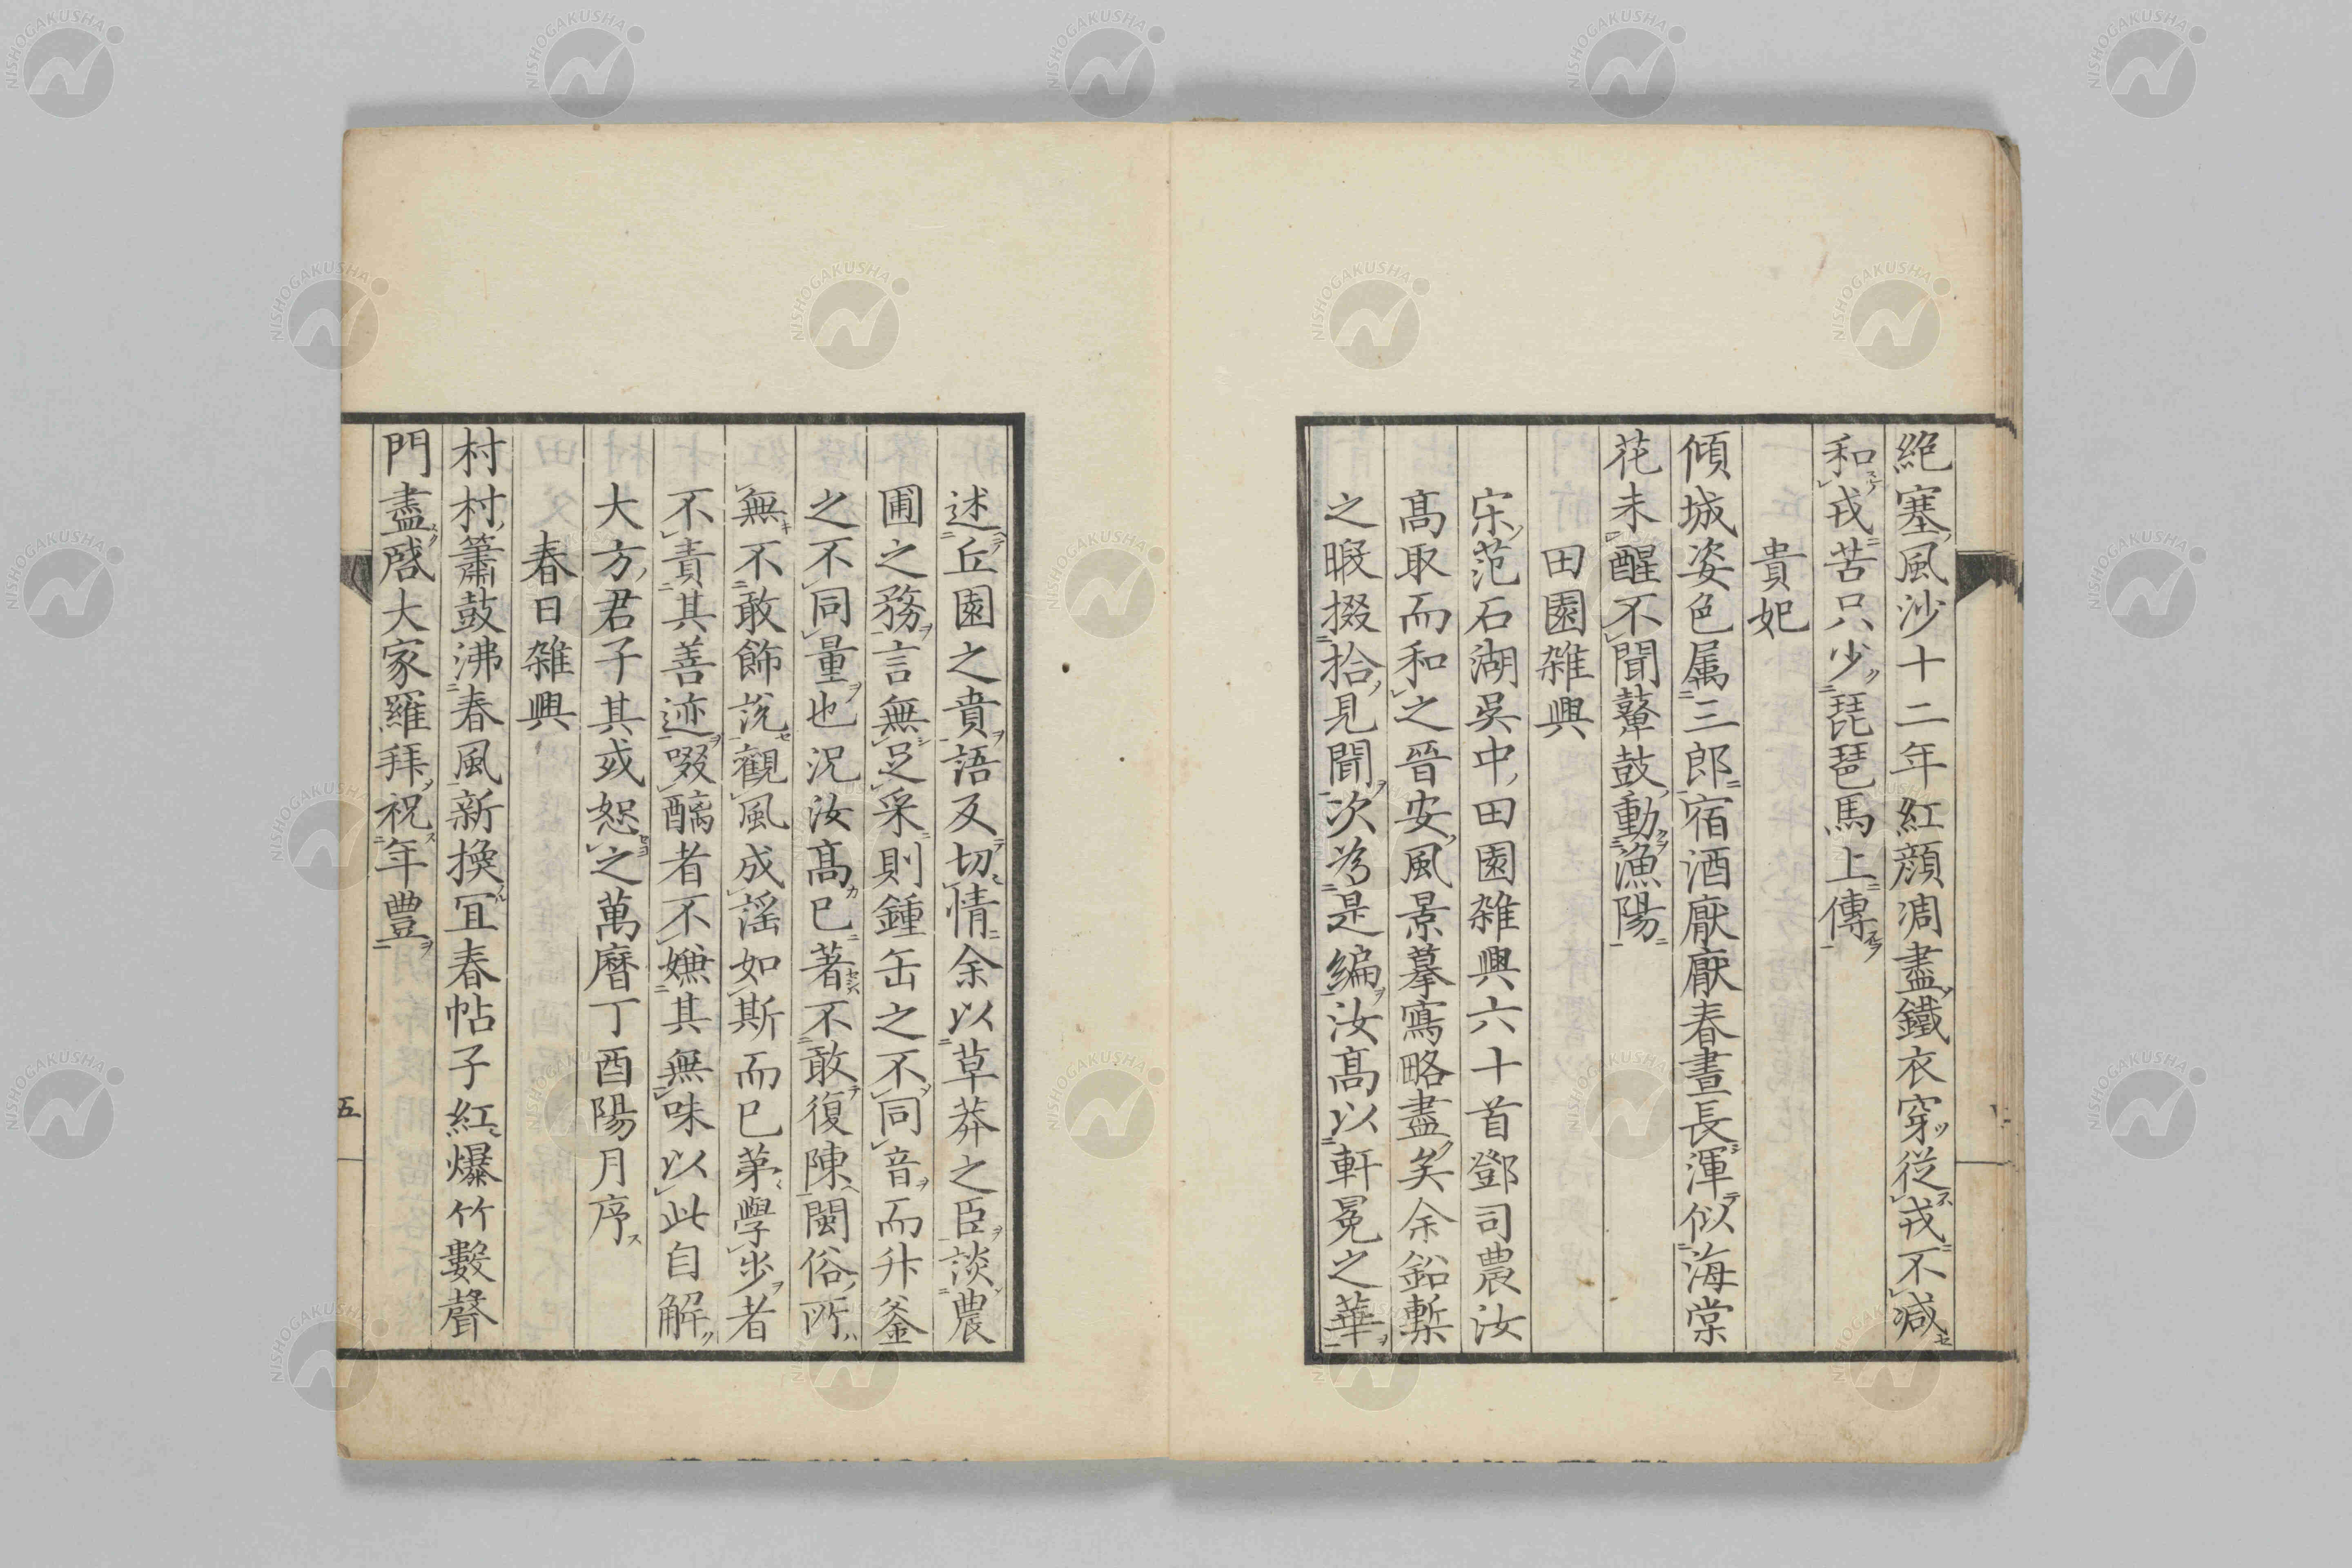 絶塞風沙十二年紅顔凋盡鐵衣穿從戎不減
和戎苦只少琵琶馬上傳
貴妃
傾城姿色属三郎宿酒厭厭春晝長渾似海棠
花未醒不聞鼙鼓動漁陽
田園雑興
宋范石湖吳中田園雑興六十首鄧司農汝
髙取而和之晉安風景摹寫略盡矣余鉛槧
之暇掇拾見聞次爲是編汝髙以軒冕之華
述丘園之賁語及切情余以草莽之臣談農
圃之務言無足采則鍾缶之不同音而升釜
之不同量也況汝髙已著不敢復陳閩俗所
無不敢飾説觀風成謡如斯而已苐學步者
不責其善迹啜醨者不嫌其無味以此自解
大方君子其或恕之萬暦丁酉陽月序
春日雑興
村村簫鼓沸春風新換冝春帖子紅爆竹數聲
門盡啓大家羅拜祝年豊
五
NISHOGAKUSHA